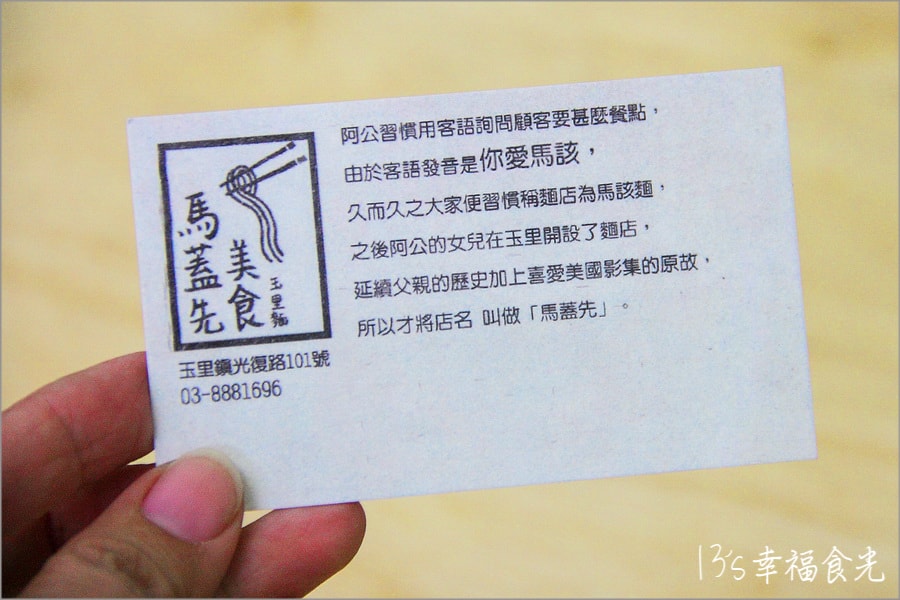 馬蓋先
美食
玉里麵
玉里鎮光復路101號
03-8881696
阿公習慣用客語詢問顧客要甚麼餐點，
由於客語發音是你愛馬該，
久而久之大家便習慣稱麵店為馬該麵，
之後阿公的女兒在玉里開設了麵店，
延續父親的歷史加上喜愛美國影集的原故，
所以才將店名 叫做「馬蓋先」。
13's幸福食光